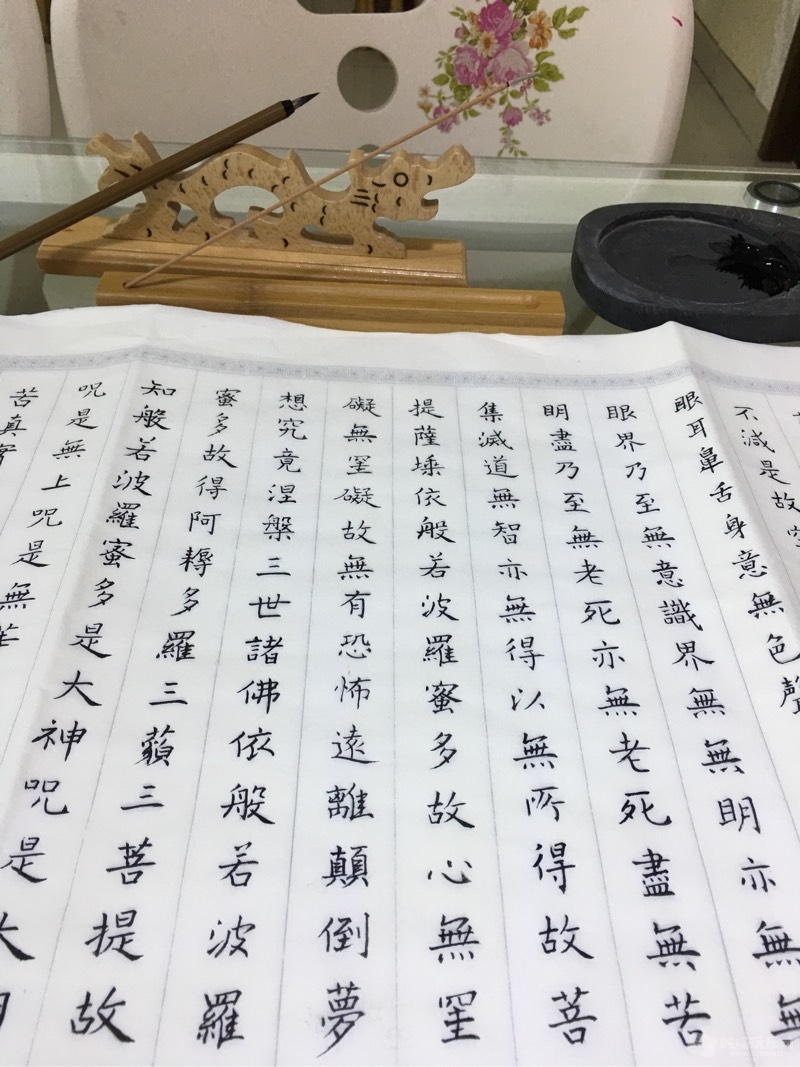 不減是故空
眼耳鼻舌身意無色聲
眼界乃至無意識界無無明亦無無
明盡乃至無老死亦無老死盡無苦
集滅道無智亦無得以無所得故菩
提薩埵依般若波羅蜜多故心無罣
礙無罣礙故無有恐怖遠離顛倒夢
想究竟涅槃三世諸佛依般若波羅
蜜多故得阿耨多羅三藐三菩提故
知般若波羅蜜多是大神咒是大明
咒是無上咒是無等
苦真實